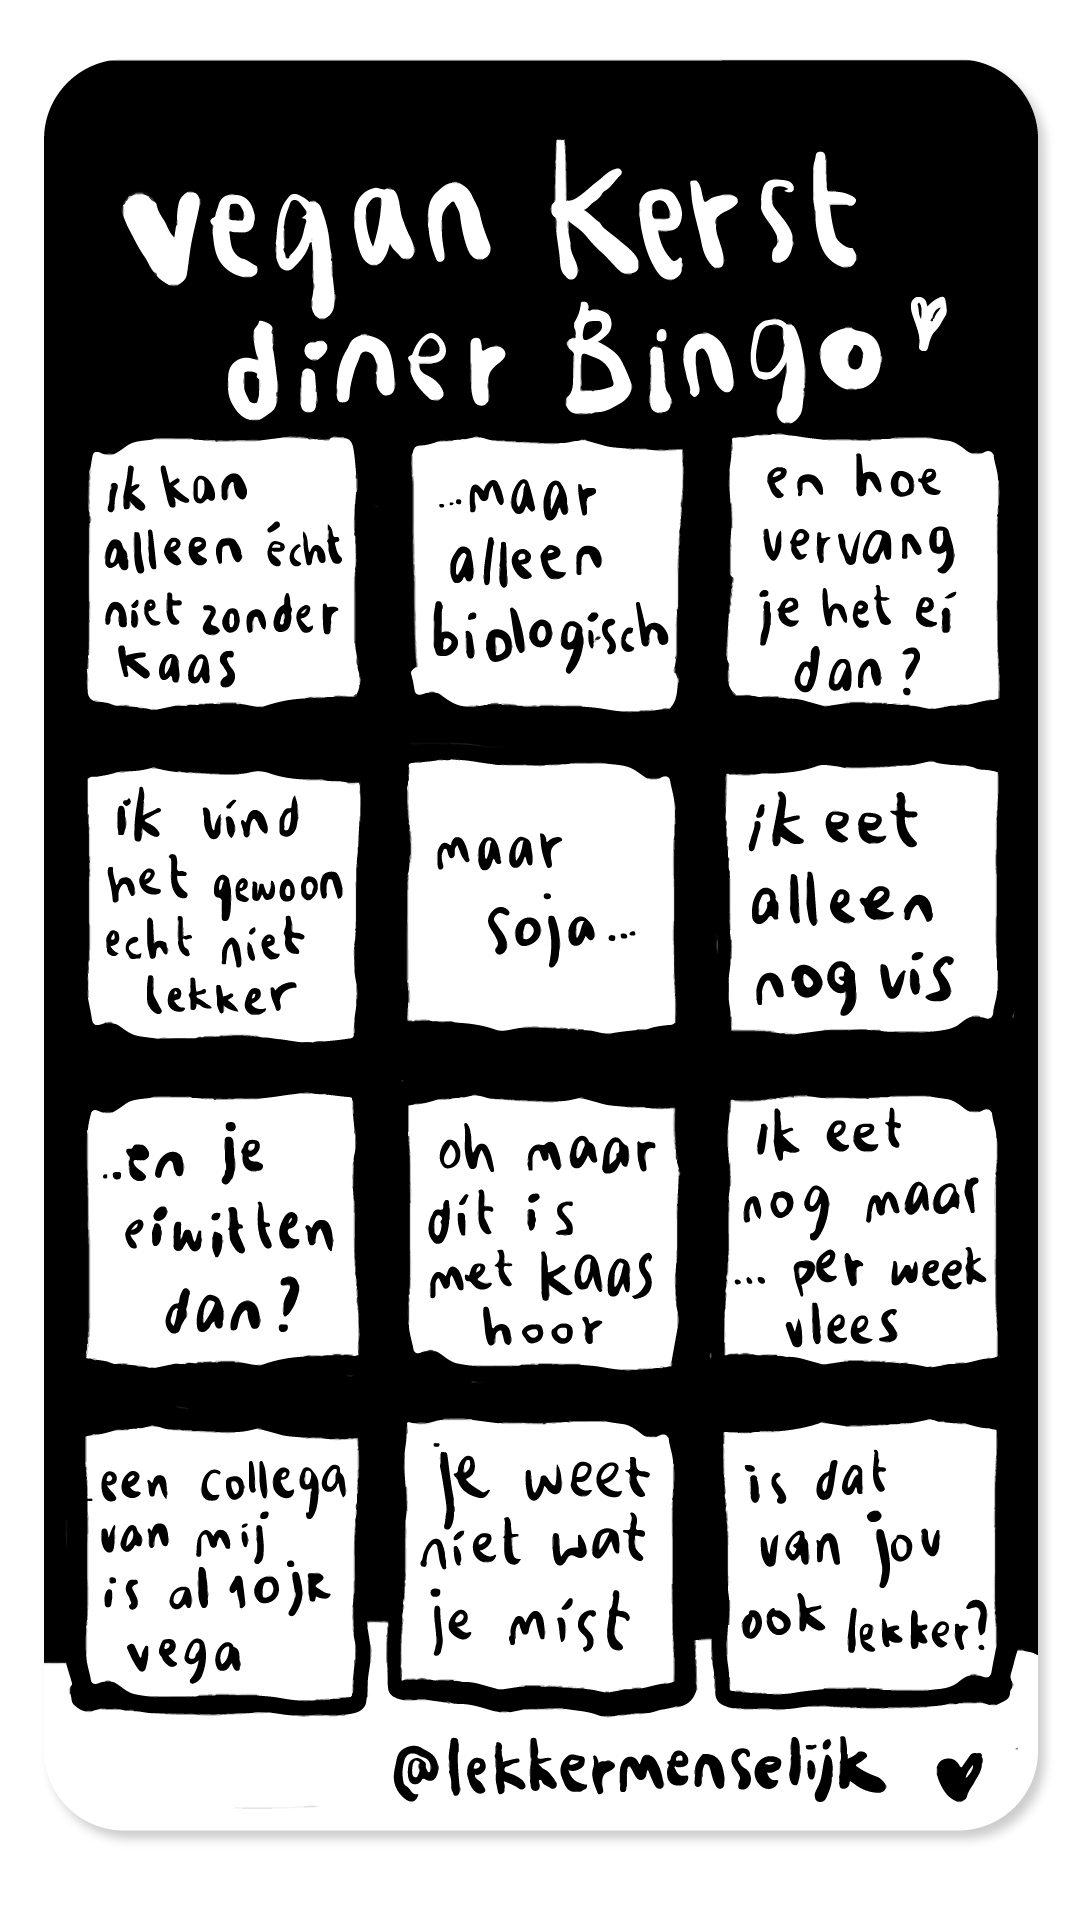 vegan kerst
diner Bingo
ik kan
alleen écht
niet zonder
kaas
...maar
alleen
biologisch
en hoe
vervang
je het ei
dan?
ik vind
het gewoon
echt niet
lekker
maar
soja...
ik eet
alleen
nog vis
..en je
eiwitten
dan?
oh maar
dit is
met kaas
hoor
ik eet
nog maar
... per week
vlees
een collega
van mij
is al 10 jr
vega
je weet
niet wat
je mist
is dat
van jou
ook lekker?
@lekkermenselijk